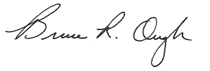 Bruce R. Ough